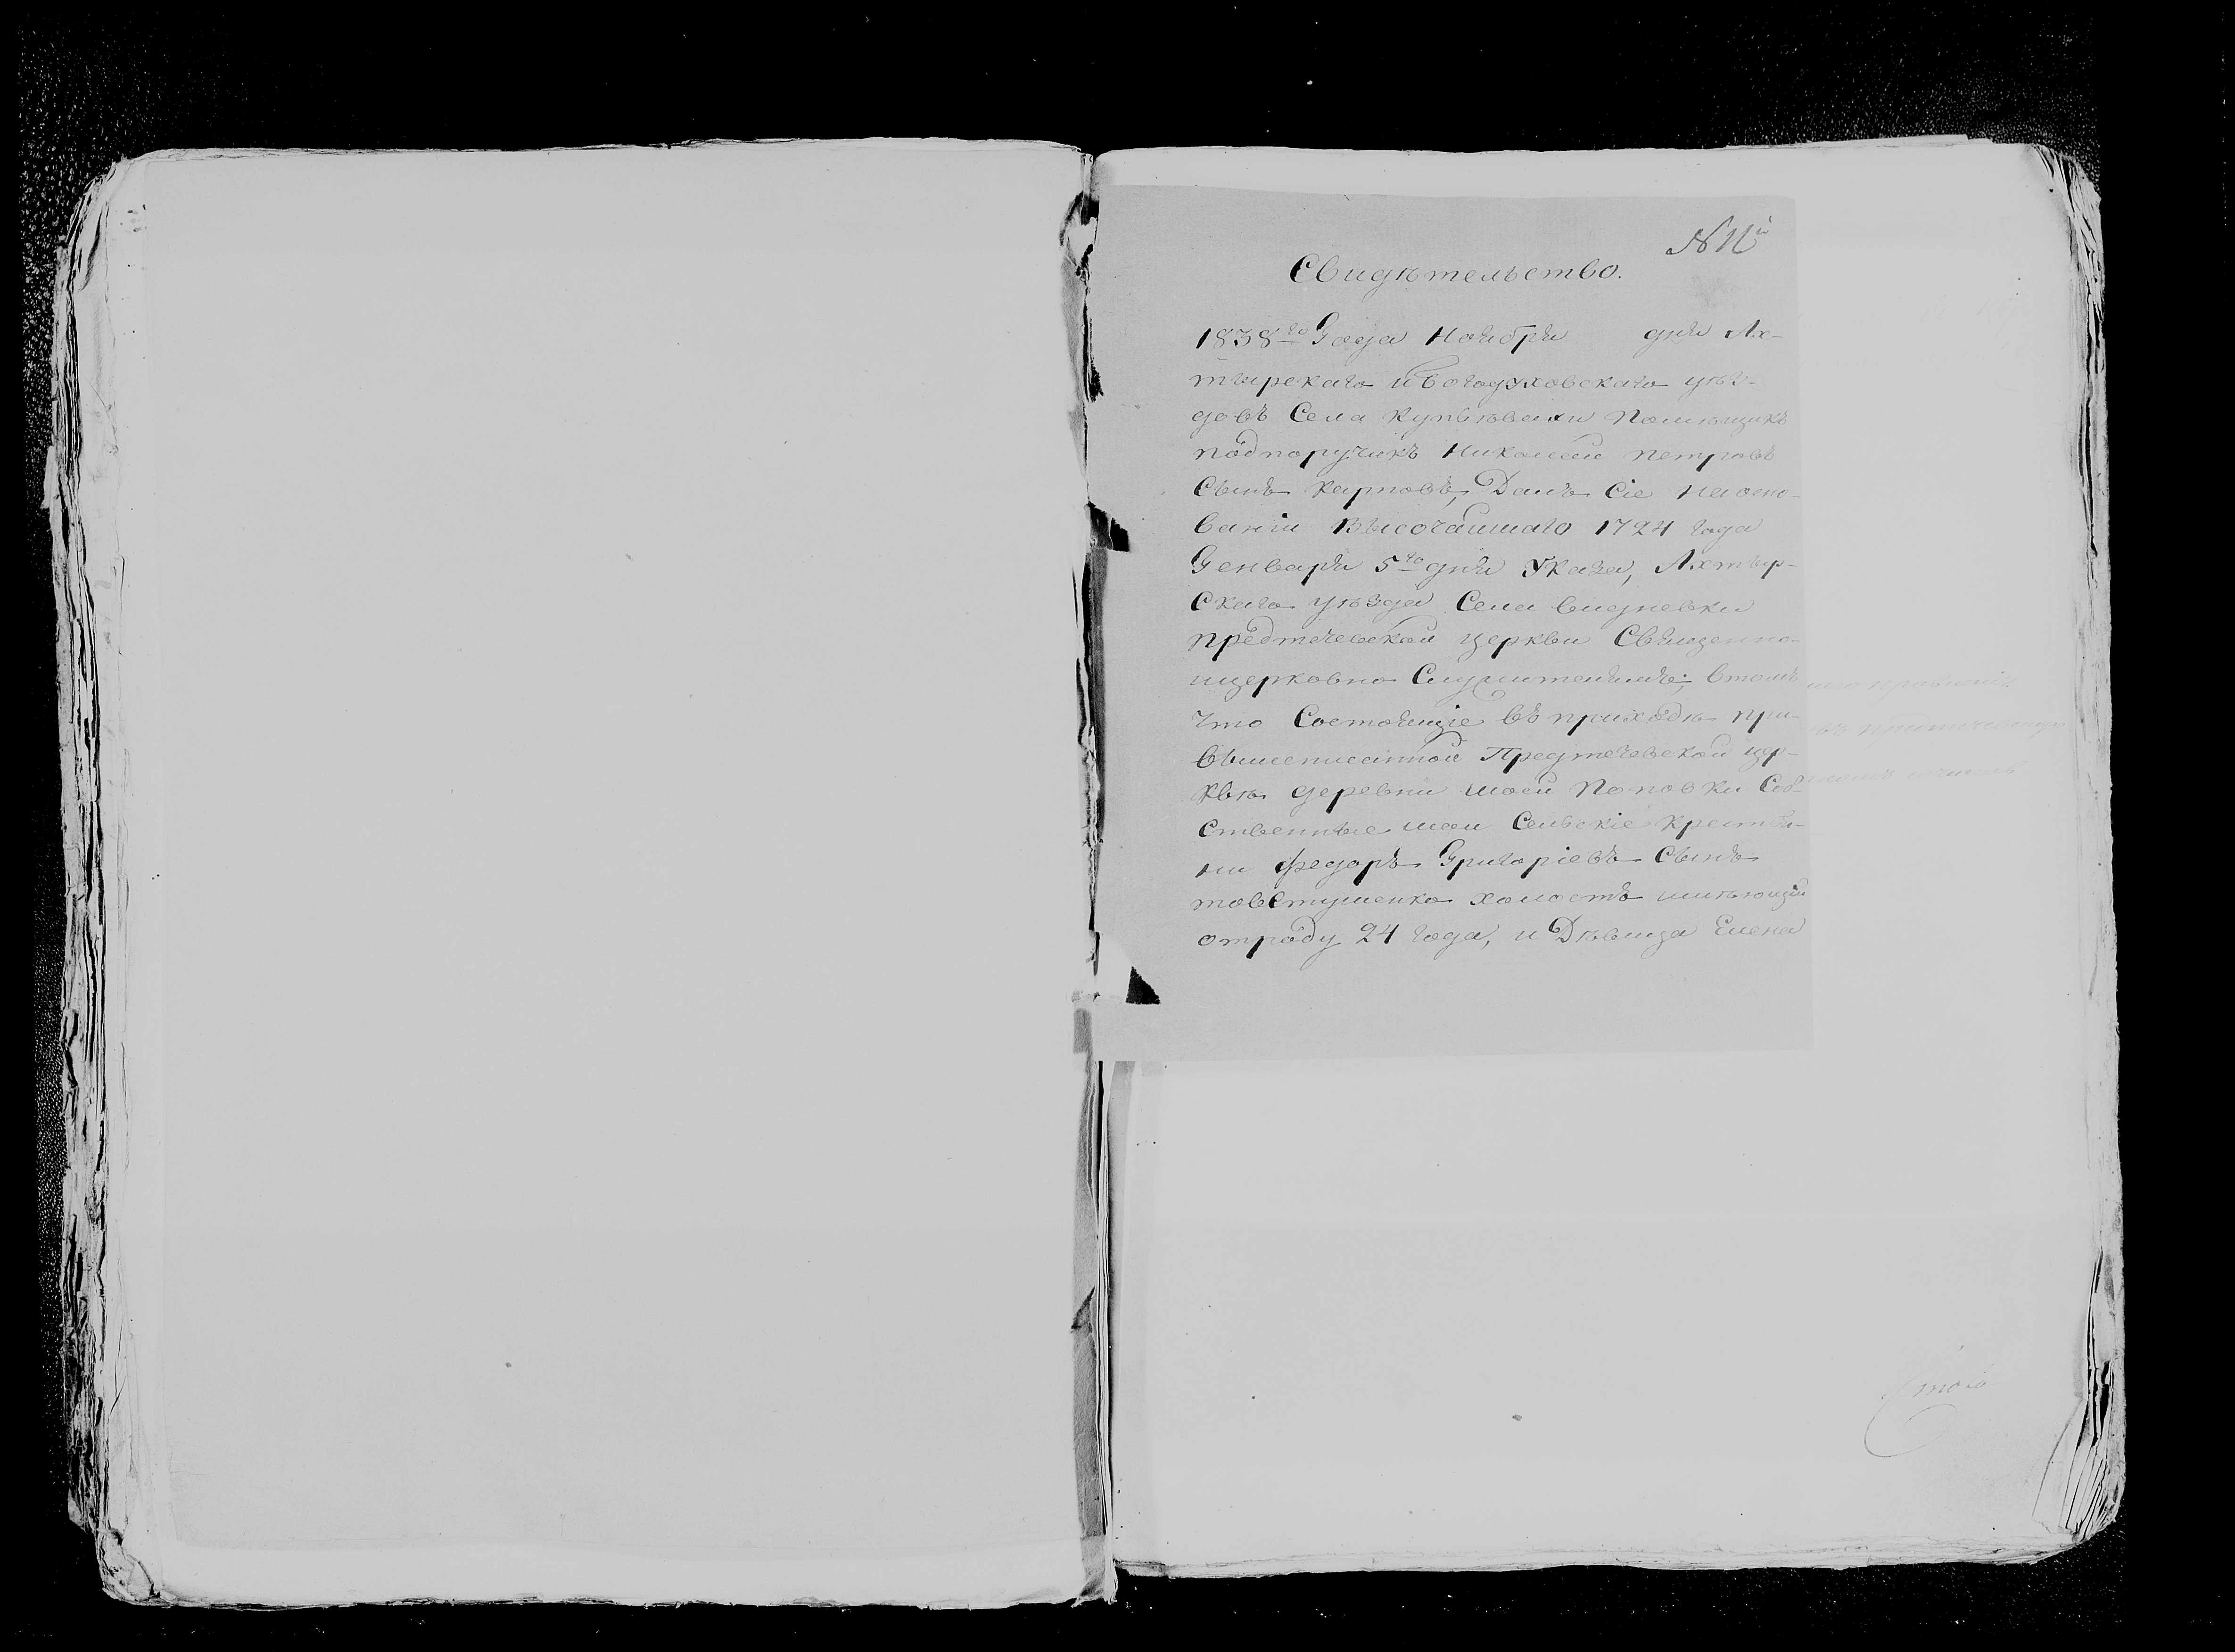 N 11й
Свидѣтельство.
1838го Года Ноября дня Ах-
тырскаго и Богодуховскаго уѣз-
довъ Села Купьѣвахи Помѣщикъ
подпоручикъ Николай Петровъ
Сынъ Карповъ, Далъ Сіе на осно-
ваніи Высочайшаго 1724 года
Генваря 5го дня Указа, Ахтыр-
скаго уѣзда Села
предтечевской церкви Священно-
ицерковно Служителямъ, втомъ
что Состоящіе въ приходѣ при
вышеписанной Предтечевской цер-
квѣ деревни моей Поповки Соб-
ственные мои Сельскіе крестья-
ни Федоръ Григоріевъ Сынъ
товстушенко холостъ имѣющій
отроду 24 года, и Дѣвица Елена